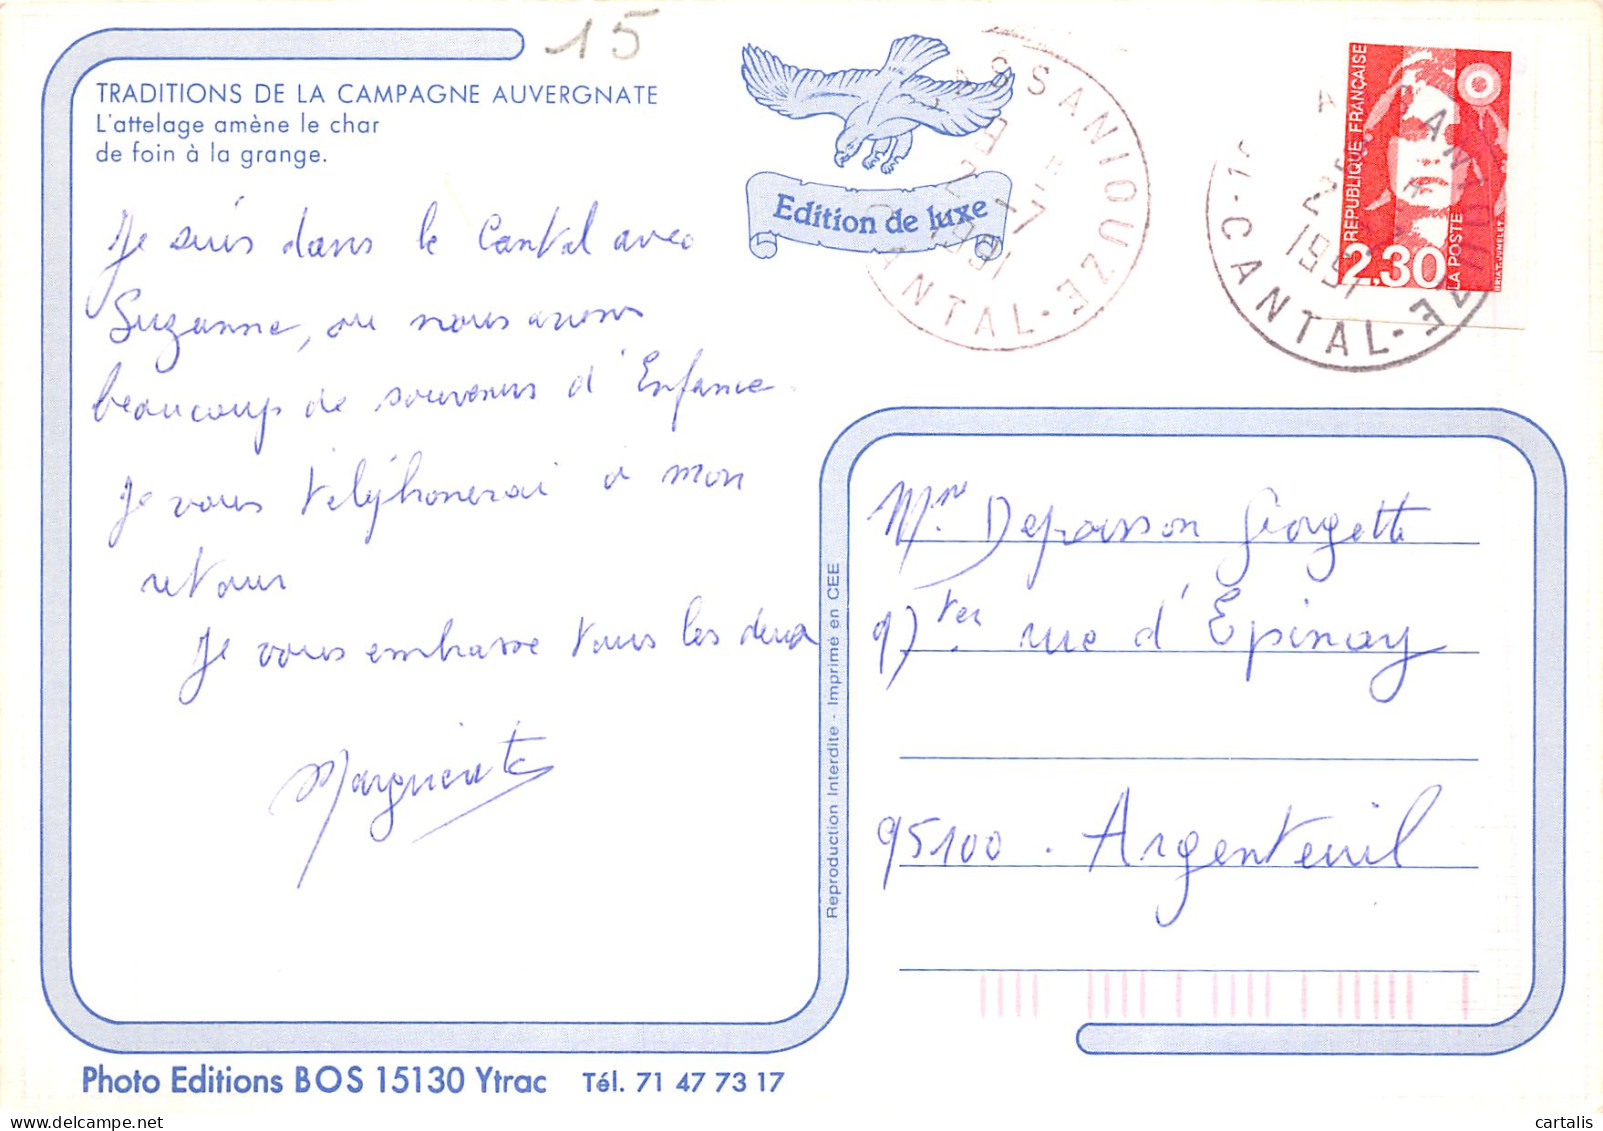 15
TRADITIONS DE LA CAMPAGNE AUVERGNATE
L'attelage amène le char
de foin à la grange.
Edition de luxe
CASSANIOUZE
CANTAL
1991
RÉPUBLIQUE FRANÇAISE
2,30
LA POSTE
CANTAL
1991
Je suis dans le Cantal avec
Suzanne, ou nous avons
beaucoup de souvenirs d'Enfance.
Je vous téléphonerai à mon
retour
Je vous embrasse tous les deux
Marguerite
Reproduction Interdite - Imprimé en CEE
Mme Depoisson Georgette
97 ter rue d'Epinay
95100. Argenteuil
Photo Editions BOS 15130 Ytrac Tél. 71 47 73 17
cartalis